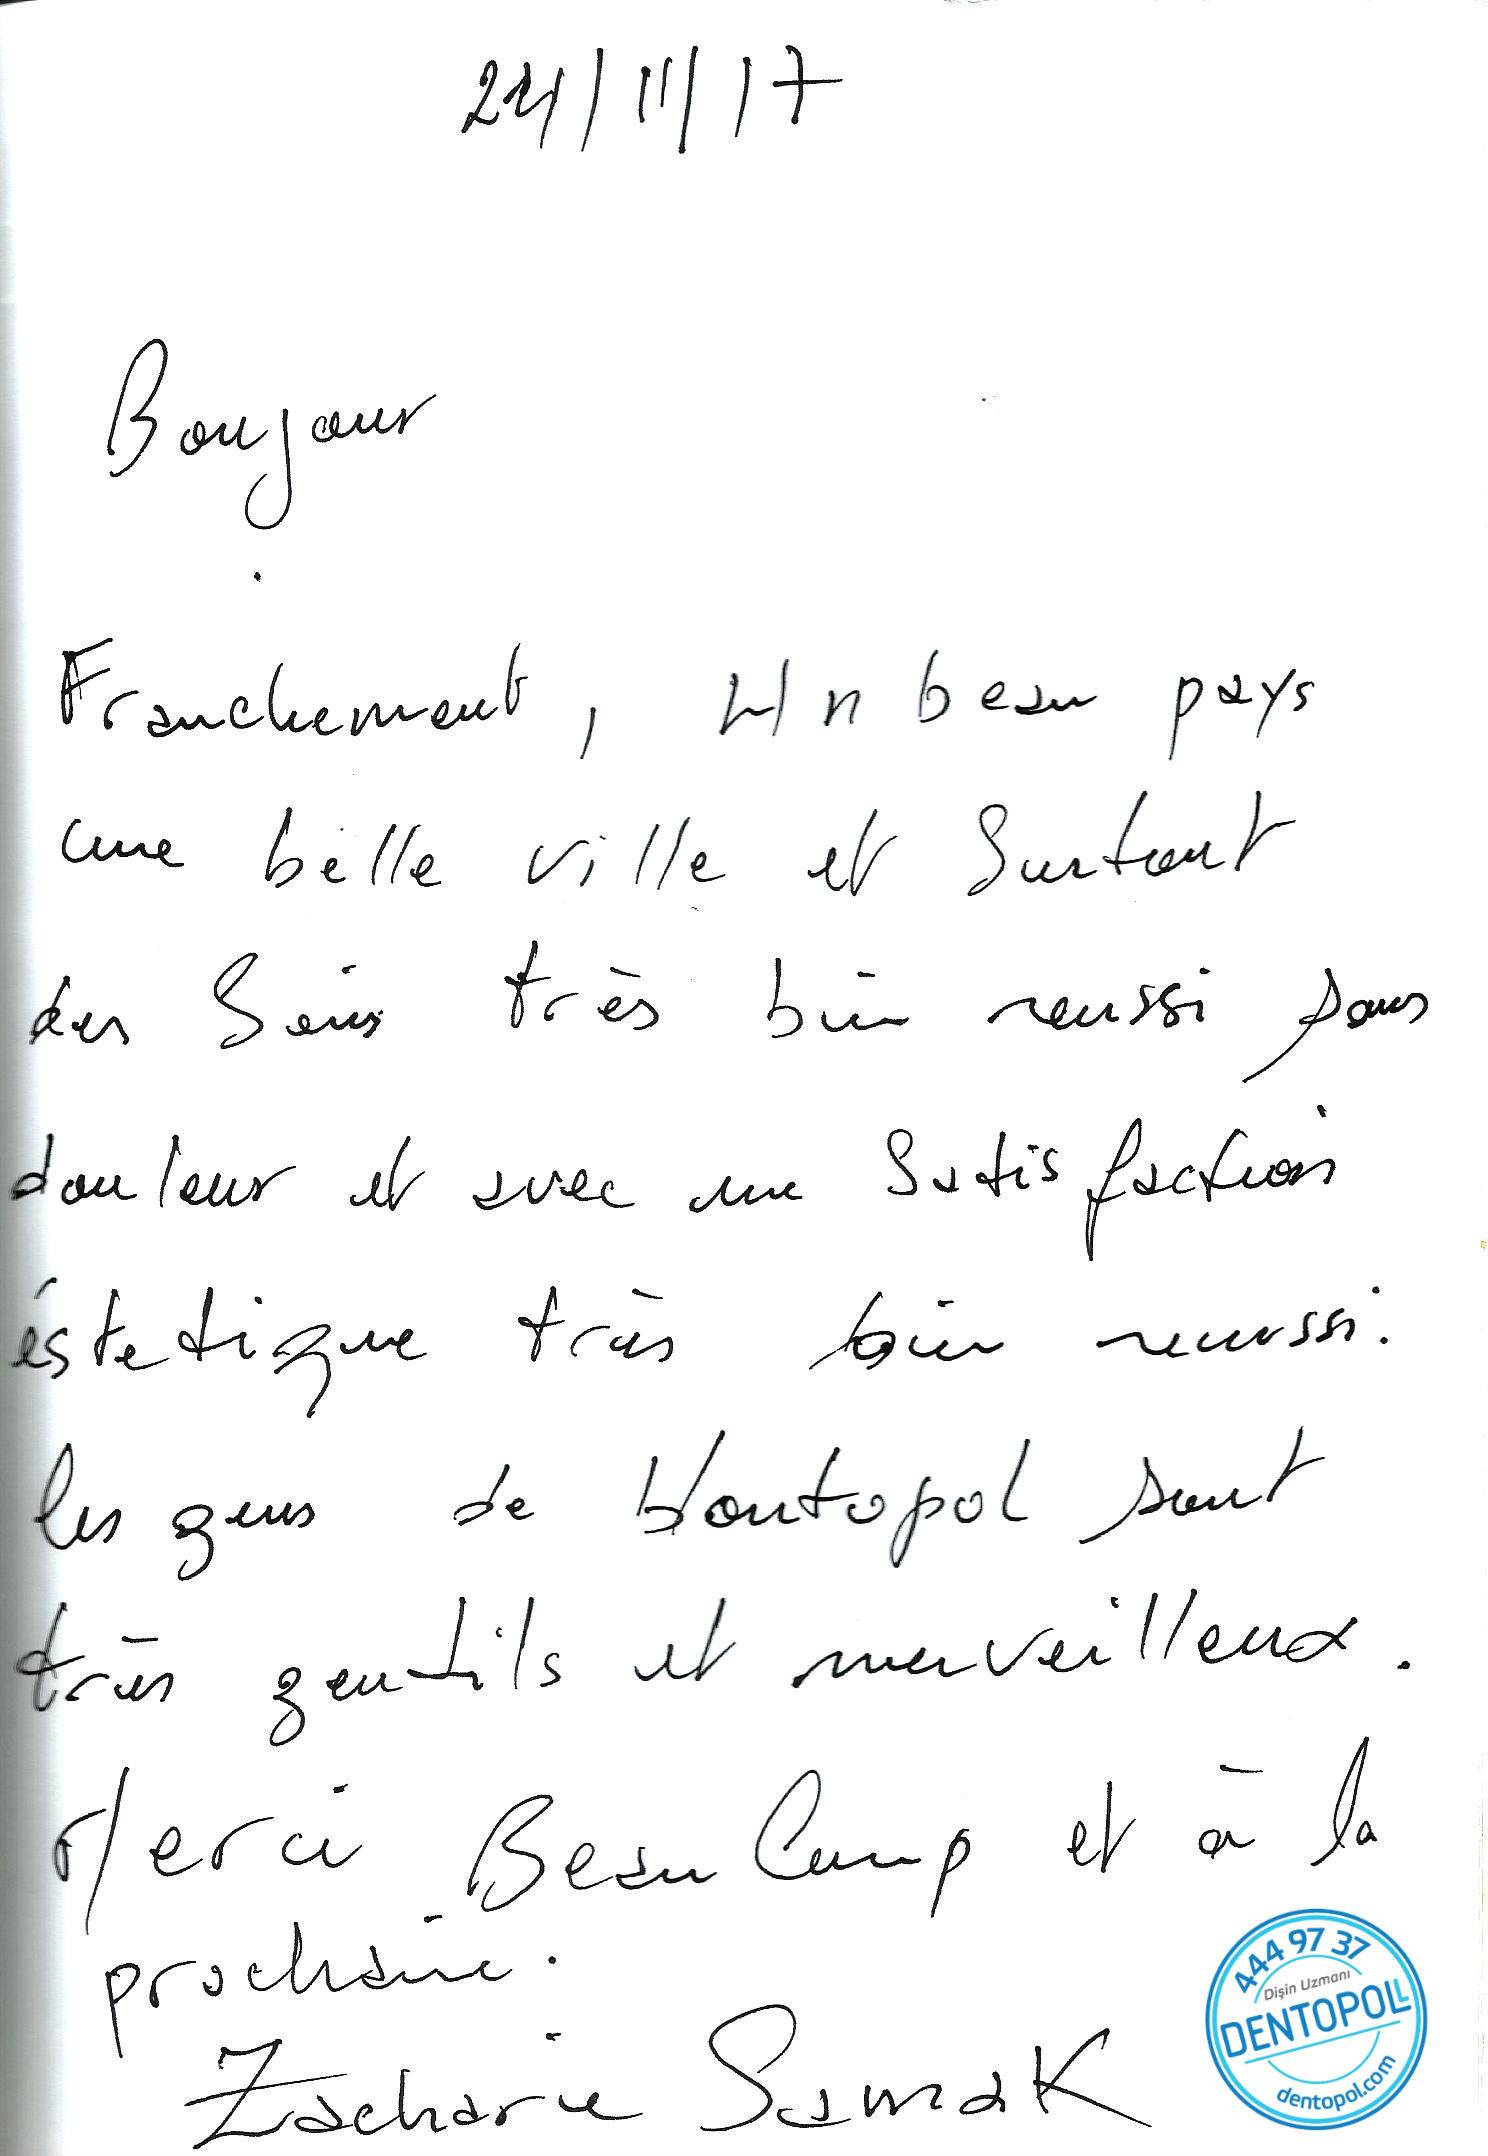 24/11/17
Bonjour
Franchement, Un beau pays
une belle ville et surtout
des Soins très bien reussi sans
douleur et avec une Satisfaction
éstetique très bien reussi.
les gens de Dontopol sont
très gentils et merveilleux.
Merci Beau Coup et à la
prochaine.
Zacharie Samak
444 97 37
Dişin Uzmanı
DENTOPOLL
dentopol.com